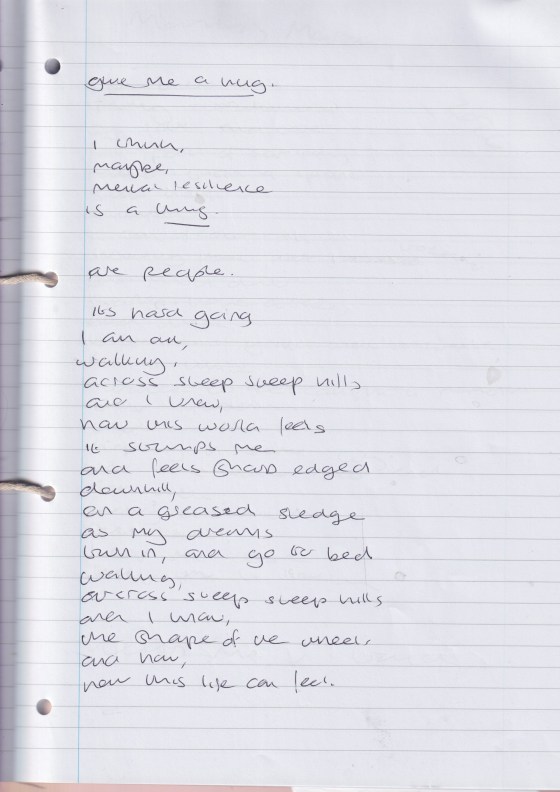 give me a hug.
I think,
maybe,
mental resilience
is a thing.
are people.
its hard going
I am on,
walking,
across steep steep hills
and I know,
how this world feels
it stumps me
and feels sharp edged
downhill,
on a greased sledge
as my dreams
turn in, and go to bed
walking,
across steep steep hills
and I know,
the shape of the wheel,
and how,
how this life can feel.